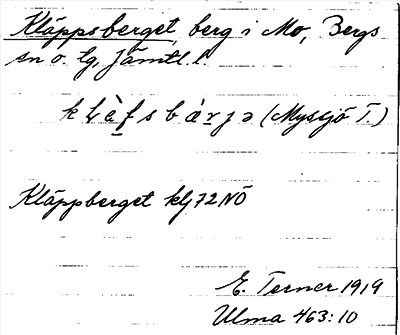 Kläppsberget, berg i Mo, Bergs
sn o. tg. Jämtl. l.
(Myssjö T.)
Kläppberget kbl 72 NÖ
E. Terner 1919
Ulma 463:10